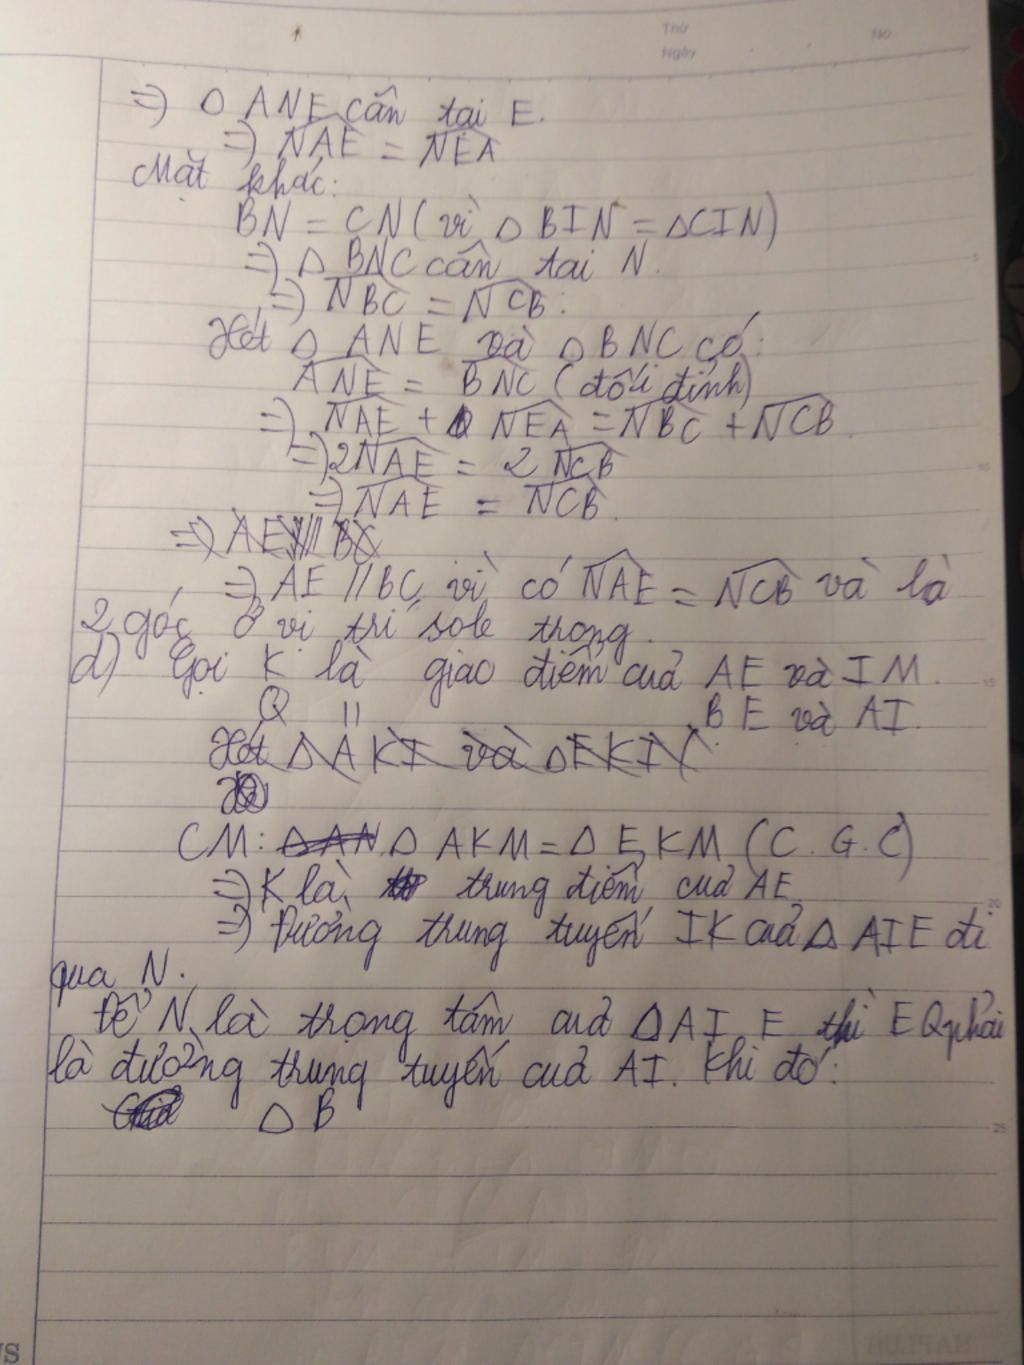 Thứ
Ngày
No
=) Δ ANE cân tại E.
=) NAE = NEA
Mặt khác:
BN = CN (vì Δ BIN = ΔCIN)
=) Δ BNC cân tại N.
=) NBC = NCB.
Xét Δ ANE và Δ BNC có:
ANE = BNC (đối đỉnh)
=) NAE + NEA = NBC + NCB.
=) 2NAE = 2 NCB
=) NAE = NCB.
=) AE // BC
=) AE // BC vì có NAE = NCB và là
2 góc ở vị trí sole trong.
d) Gọi K là giao điểm của AE và IM.
Q || BE và AI.
Xét Δ AKI và ΔEKI (
CM: Δ AN Δ AKM = Δ EKM (C.G.C)
=) K là trung điểm của AE
=) Đường trung tuyến IK của Δ AIE đi
qua N.
Để N là trọng tâm của ΔAI E thì EQ phải
là đường trung tuyến của AI. Khi đó:
Δ B